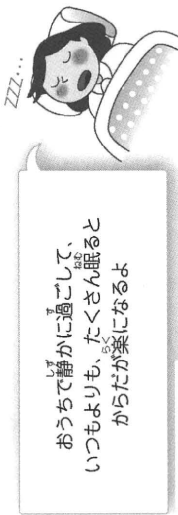 ZZZ...
おうちで静かに過ごして、
いつもよりも、たくさん眠ると
からだが楽になるよ